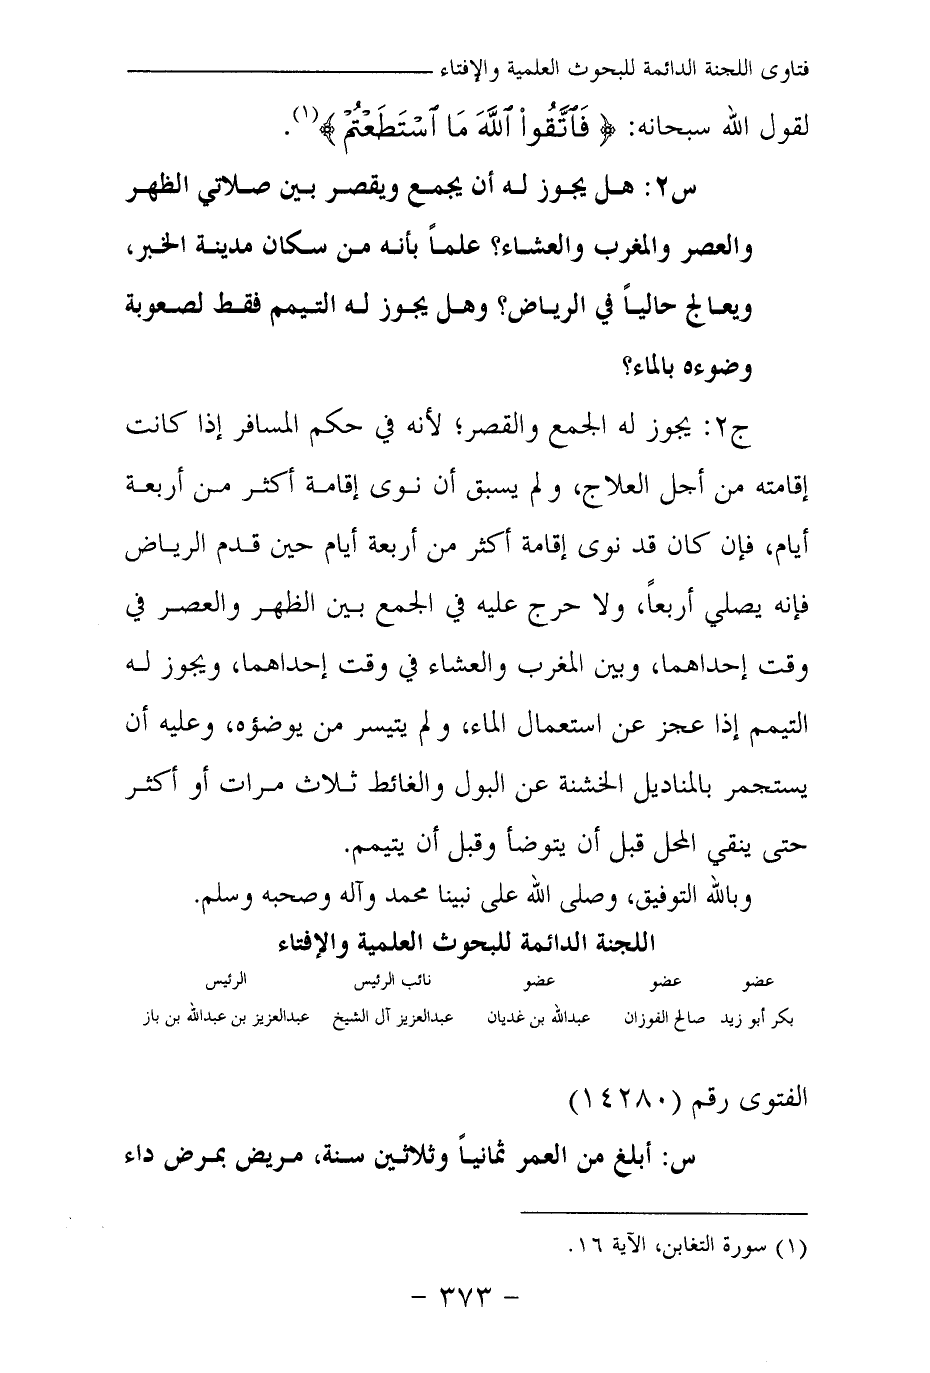 فتاوى اللجنة الدائمة للبحوث العلمية والإفتاء
لقول الله سبحانه: ﴿ فَٱتَّقُوا۟ ٱللَّهَ مَا ٱسْتَطَعْتُمْ ﴾(١).
س٢: هل يجوز له أن يجمع ويقصر بين صلاتي الظهر
والعصر والمغرب والعشاء؟ علماً بأنه من سكان مدينة الخبر،
ويعالج حالياً في الرياض؟ وهل يجوز له التيمم فقط لصعوبة
وضوءه بالماء؟
ج٢: يجوز له الجمع والقصر؛ لأنه في حكم المسافر إذا كانت
إقامته من أجل العلاج، ولم يسبق أن نوى إقامة أكثر من أربعة
أيام، فإن كان قد نوى إقامة أكثر من أربعة أيام حين قدم الرياض
فإنه يصلي أربعاً، ولا حرج عليه في الجمع بين الظهر والعصر في
وقت إحداهما، وبين المغرب والعشاء في وقت إحداهما، ويجوز له
التيمم إذا عجز عن استعمال الماء، ولم يتيسر من يوضؤه، وعليه أن
يستجمر بالمناديل الخشنة عن البول والغائط ثلاث مرات أو أكثر
حتى ينقي المحل قبل أن يتوضأ وقبل أن يتيمم.
وبالله التوفيق، وصلى الله على نبينا محمد وآله وصحبه وسلم.
اللجنة الدائمة للبحوث العلمية والإفتاء
عضو عضو عضو نائب الرئيس الرئيس
بكر أبو زيد صالح الفوزان عبدالله بن غديان عبدالعزيز آل الشيخ عبدالعزيز بن عبدالله بن باز
الفتوى رقم (١٤٢٨٠)
س: أبلغ من العمر ثمانياً وثلاثين سنة، مريض بمرض داء
(١) سورة التغابن، الآية ١٦.
- ٣٧٣ -